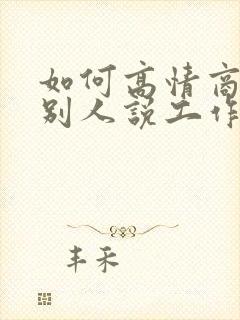 如何高情商
别人说工作
丰禾